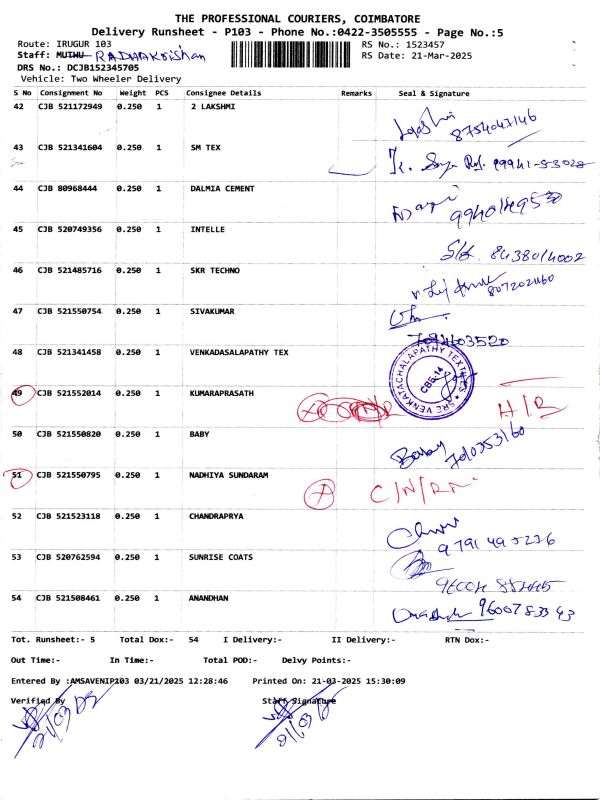 THE PROFESSIONAL COURIERS, COIMBATORE
Delivery Runsheet - P103 - Phone No.:0422-3505555 - Page No.:5
Route: IRUGUR 103 RS No.: 1523457
Staff: MUTHU RADHAKRISHAN RS Date: 21-Mar-2025
DRS No.: DCJB152345705
Vehicle: Two Wheeler Delivery
S No Consignment No Weight PCS Consignee Details Remarks Seal & Signature
42 CJB 521172949 0.250 1 2 LAKSHMI
8754047146
43 CJB 521341604 0.250 1 SM TEX
99941-53028
44 CJB 80968444 0.250 1 DALMIA CEMENT
45 CJB 520749356 0.250 1 INTELLE
8438014002
46 CJB 521485716 0.250 1 SKR TECHNO
47 CJB 521550754 0.250 1 SIVAKUMAR
7094603520
48 CJB 521341458 0.250 1 VENKADASALAPATHY TEX
SRE VENKATACHALAPATHY TEXTILES
CBE-14
49 CJB 521552014 0.250 1 KUMARAPRASATH
50 CJB 521550820 0.250 1 BABY
51 CJB 521550795 0.250 1 NADHIYA SUNDARAM
C/N/RN
52 CJB 521523118 0.250 1 CHANDRAPRYA
9791495276
53 CJB 520762594 0.250 1 SUNRISE COATS
54 CJB 521508461 0.250 1 ANANDHAN
9600783343
Tot. Runsheet:- 5 Total Dox:- 54 I Delivery:- II Delivery:- RTN Dox:-
Out Time:- In Time:- Total POD:- Delvy Points:-
Entered By :AMSAVENIP103 03/21/2025 12:28:46 Printed On: 21-03-2025 15:30:09
Verified By Staff Signature
21/03 21/03